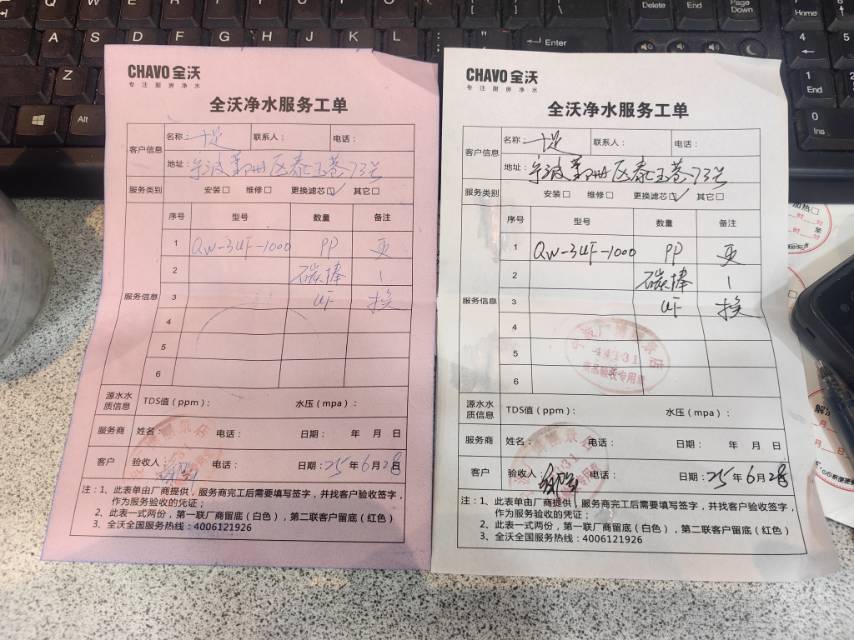 CHAVO 全沃
专注厨房净水
全沃净水服务工单
客户信息
名称:
联系人:
电话:
地址: 宁波鄞州区泰玉巷73号
服务类别
安装□ 维修□ 更换滤芯☑ 其它□
服务信息
序号 型号 数量 备注
1 QW-3UF-1000 PP 更
2 碳棒 |
3 UF 换
4
5
6
源水水质信息
TDS值(ppm): 水压(mpa):
服务商 姓名: 电话: 日期: 年 月 日
客户 验收人: 电话: 日期: 25年6月28日
注:1、此表单由厂商提供,服务商完工后需要填写签字,并找客户验收签字,
作为服务验收的凭证;
2、此表一式两份,第一联厂商留底(白色),第二联客户留底(红色)
3、全沃全国服务热线:4006121926
CHAVO 全沃
专注厨房净水
全沃净水服务工单
客户信息
名称:
联系人:
电话:
地址: 宁波鄞州区泰玉巷73号
服务类别
安装□ 维修□ 更换滤芯☑ 其它□
服务信息
序号 型号 数量 备注
1 QW-3UF-1000 PP 更
2 碳棒 |
3 UF 换
4
5
6
44131
源水水质信息
TDS值(ppm): 水压(mpa):
服务商 姓名: 电话: 日期: 年 月 日
客户 验收人: 电话: 日期: 25年6月28日
注:1、此表单由厂商提供,服务商完工后需要填写签字,并找客户验收签字,
作为服务验收的凭证;
2、此表一式两份,第一联厂商留底(白色),第二联客户留底(红色)
3、全沃全国服务热线:4006121926
Delete
End
Page Down
Home
Enter
Alt
Ins